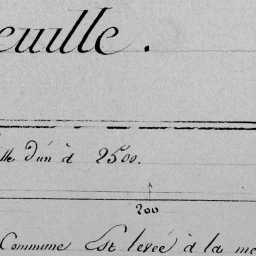 euille.
lle d'un à 2500.
200
Commune Est levée à la me